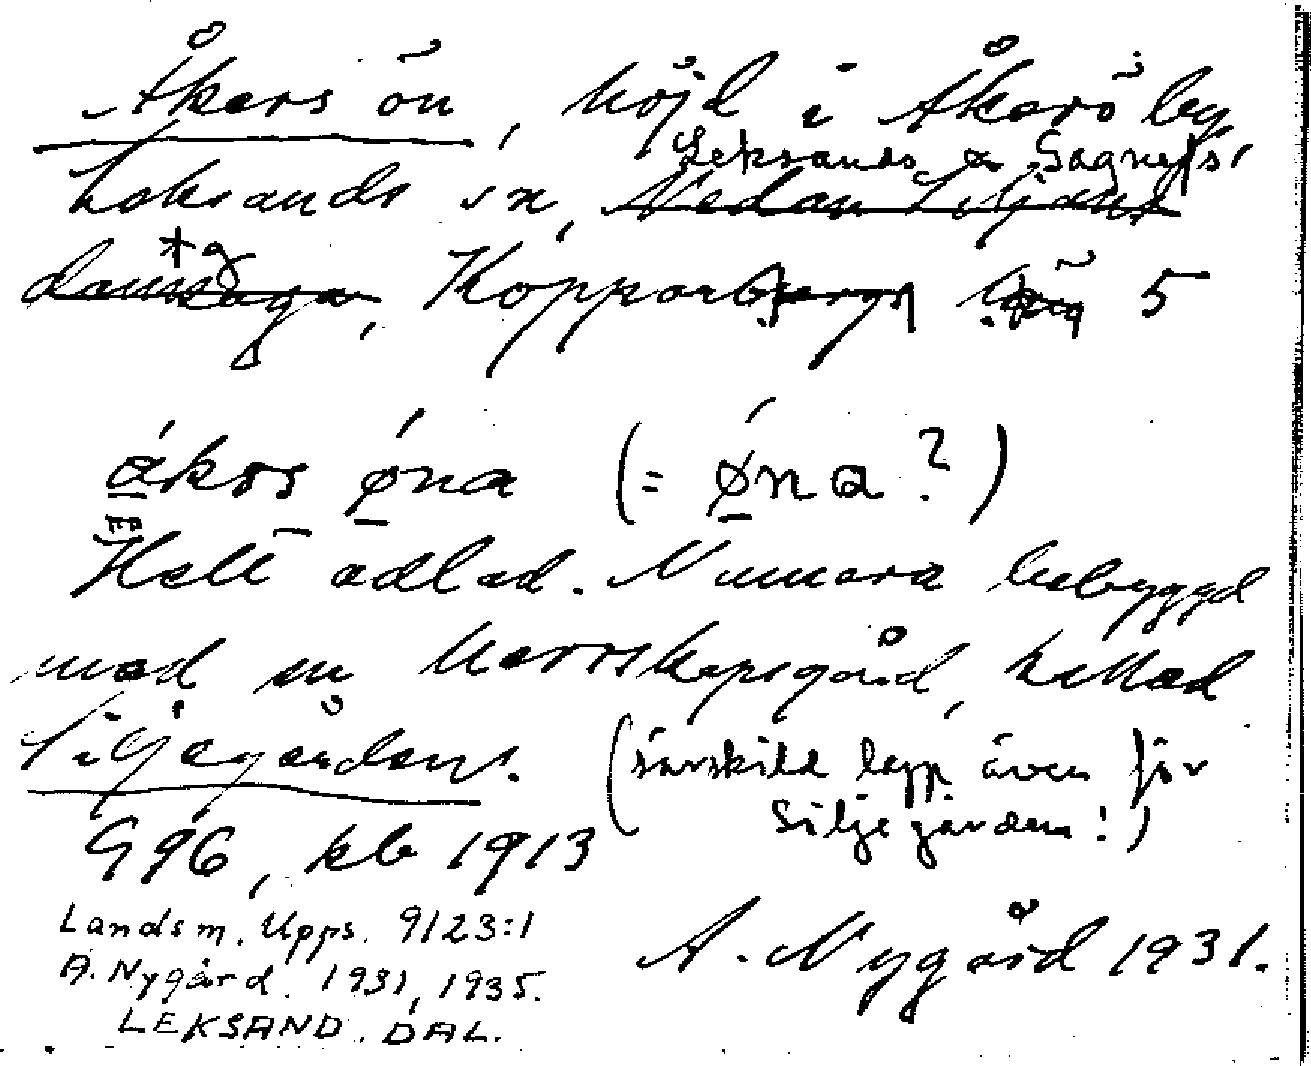 Åkers ön, höjd i Åkerö by
Leksands o Gagnefs
Leksands sn, Nedan Siljans
tg
domsaga, Kopparbergs län 5
ákərs ǿna (= ǿna?)
Helt odlad. Numera bebyggd
med en herrskapsgård, kallad
Siljegården. (särskild lapp även för
Siljegården!)
G96, kb 1913
Landsm. Upps. 9123:1
A. Nygård 1931.
A. Nygård. 1931, 1935.
LEKSAND. DAL.